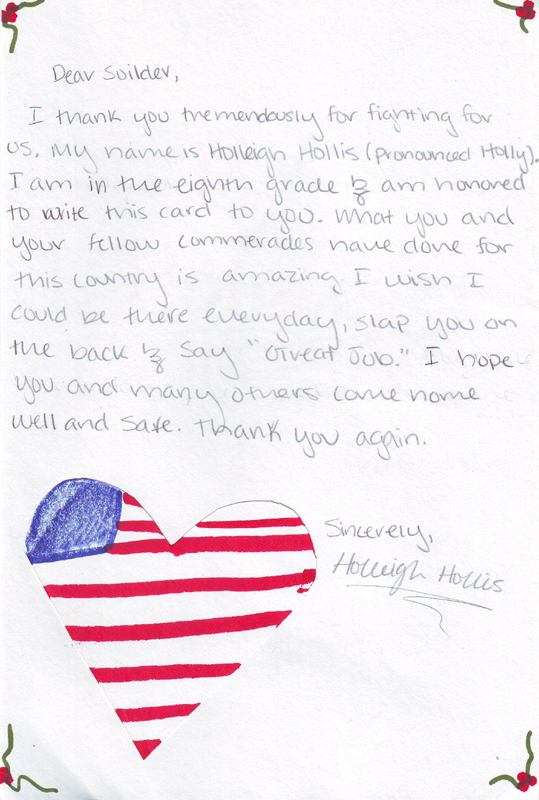 Dear Soilder,
I thank you tremendously for fighting for
us. My name is Holleigh Hollis (pronounced Holly).
I am in the eighth grade & am honored
to write this card to you. What you and
your fellow commerades have done for
this country is amazing. I wish I
could be there everyday, slap you on
the back & say "Great Job." I hope
you and many others come home
well and safe. Thank you again.
Sincerely,
Holleigh Hollis